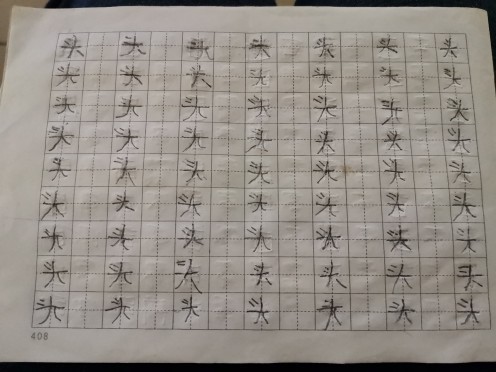 头 头 头 头 头 头 头
头 头 头 头 头 头 头
头 头 头 头 头 头 头
头 头 头 头 头 头 头
头 头 头 头 头 头 头
头 头 头 头 头 头 头
头 头 头 头 头 头 头
头 头 头 头 头 头 头
头 头 头 头 头 头 头
408